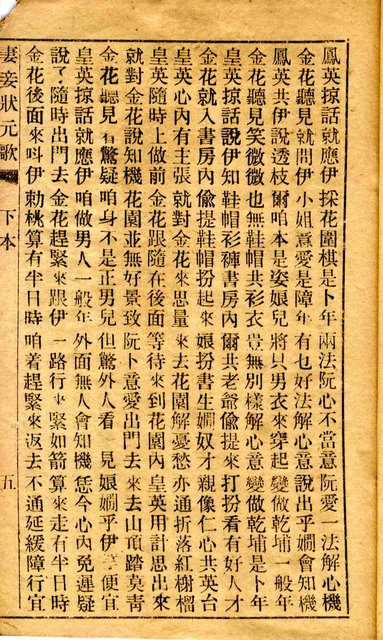 鳳英掠話就應伊 採花圍棋是卜年 兩法阮心不當意 阮愛一法解心機
金花聽見就問伊 小姐意愛是障年 有乜好法解心意 說出乎嫺會知機
鳳英共伊說透枝 爾咱本是姿娘兒 將只男衣來穿起 變做乾埔一般年
金花聽見笑微微 也無鞋帽共衫衣 豈無別樣解心意 變做乾埔是卜年
皇英掠話說伊知 鞋帽衫褲書房內 爾共老爺偸提來 打扮看有好人才
金花就入書房內 偸提鞋帽扮起來 娘扮書生嫺奴才 親像仁心共英台
皇英心內有主張 就對金花來思量 來去花園解憂愁 亦通折落紅榭榴
皇英隨時上做前 金花跟隨在後面 等待來到花園內 皇英用計思出來
就對金花說知機 花園並無好景致 阮卜意愛出門去 來去山頂踏莫靑
金花聽見着驚疑 咱身不是正男兒 但驚外人看一見 娘嫺乎伊乞便宜
皇英掠話就應伊 咱做男人一般年 外面無人會知機 恁今心內免遲疑
說了隨時出門去 金花趕緊來跟伊 一路行來緊如箭 算來走有半日時
金花後面來叫伊 勅桃算有半日時 咱着趕緊來返去 不通延緩障行宜
妻妾狀元歌 下本 五